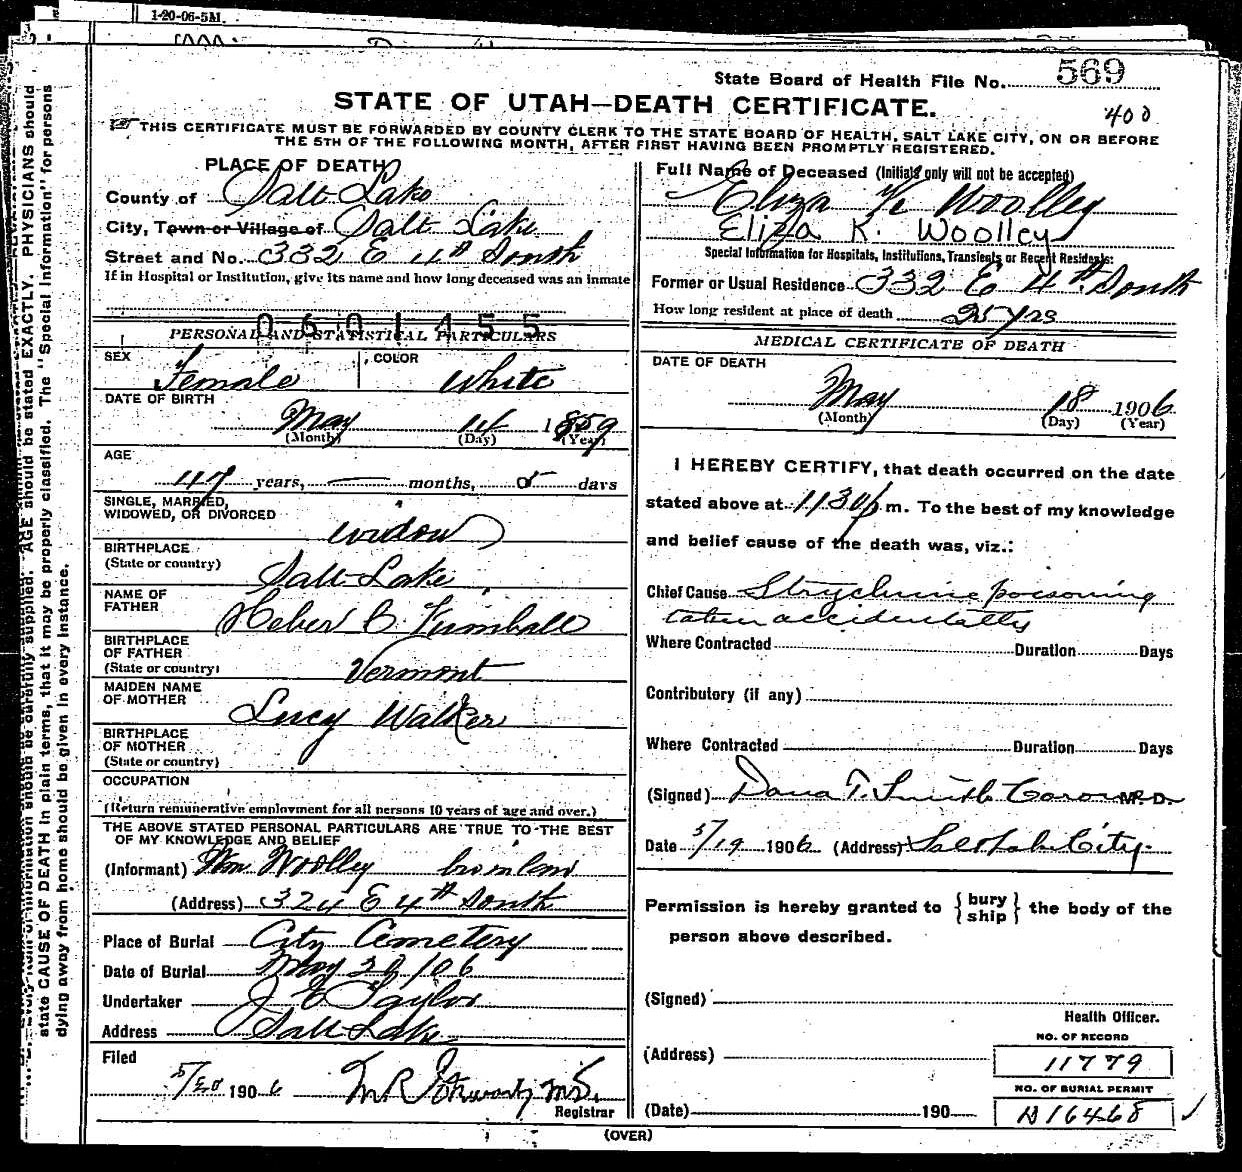 1-20-06-5M.
State Board of Health File No. 569
STATE OF UTAH—DEATH CERTIFICATE.
400
THIS CERTIFICATE MUST BE FORWARDED BY COUNTY CLERK TO THE STATE BOARD OF HEALTH, SALT LAKE CITY, ON OR BEFORE
THE 5TH OF THE FOLLOWING MONTH, AFTER FIRST HAVING BEEN PROMPTLY REGISTERED.
PLACE OF DEATH
County of Salt Lake
City, Town or Village of Salt Lake
Street and No. 332 E 4th South
If in Hospital or Institution, give its name and how long deceased was an inmate
0601455
PERSONAL AND STATISTICAL PARTICULARS
SEX Female COLOR White
DATE OF BIRTH
May 14 1859
(Month) (Day) (Year)
AGE
47 years, — months, 5 days
SINGLE, MARRIED,
WIDOWED, OR DIVORCED widow
BIRTHPLACE
(State or country) Salt Lake
NAME OF
FATHER Heber C. Kimball
BIRTHPLACE
OF FATHER
(State or country) Vermont
MAIDEN NAME
OF MOTHER Lucy Walker
BIRTHPLACE
OF MOTHER
(State or country)
OCCUPATION
(Return remunerative employment for all persons 10 years of age and over.)
THE ABOVE STATED PERSONAL PARTICULARS ARE TRUE TO THE BEST
OF MY KNOWLEDGE AND BELIEF
(Informant) Wm Woolley bro in law
(Address) 324 E 4th South
Place of Burial City Cemetery
Date of Burial May 20/06
Undertaker J E Taylor
Address Salt Lake
Filed
5/20 1906 M R
Registrar
Full Name of Deceased (Initials only will not be accepted)
Eliza K Woolley
Eliza K. Woolley
Special Information for Hospitals, Institutions, Transients or Recent Residents:
Former or Usual Residence 332 E 4th South
How long resident at place of death 25 yrs
MEDICAL CERTIFICATE OF DEATH
DATE OF DEATH
May 18 1906
(Month) (Day) (Year)
I HEREBY CERTIFY, that death occurred on the date
stated above at 1130 p m. To the best of my knowledge
and belief cause of the death was, viz.:
Chief Cause Strychnine poisoning
taken accidentally
Where Contracted Duration Days
Contributory (if any)
Where Contracted Duration Days
(Signed) Dana T. Smith Coroner M. D.
Date 5/19 1906 (Address) Salt Lake City.
Permission is hereby granted to {bury ship} the body of the
person above described.
(Signed)
Health Officer.
(Address)
NO. OF RECORD
11779
NO. OF BURIAL PERMIT
(Date) 190 A16468
(OVER)
AGE should be stated EXACTLY. PHYSICIANS should
state CAUSE OF DEATH in plain terms, that it may be properly classified. The "Special Information" for persons
dying away from home should be given in every instance.